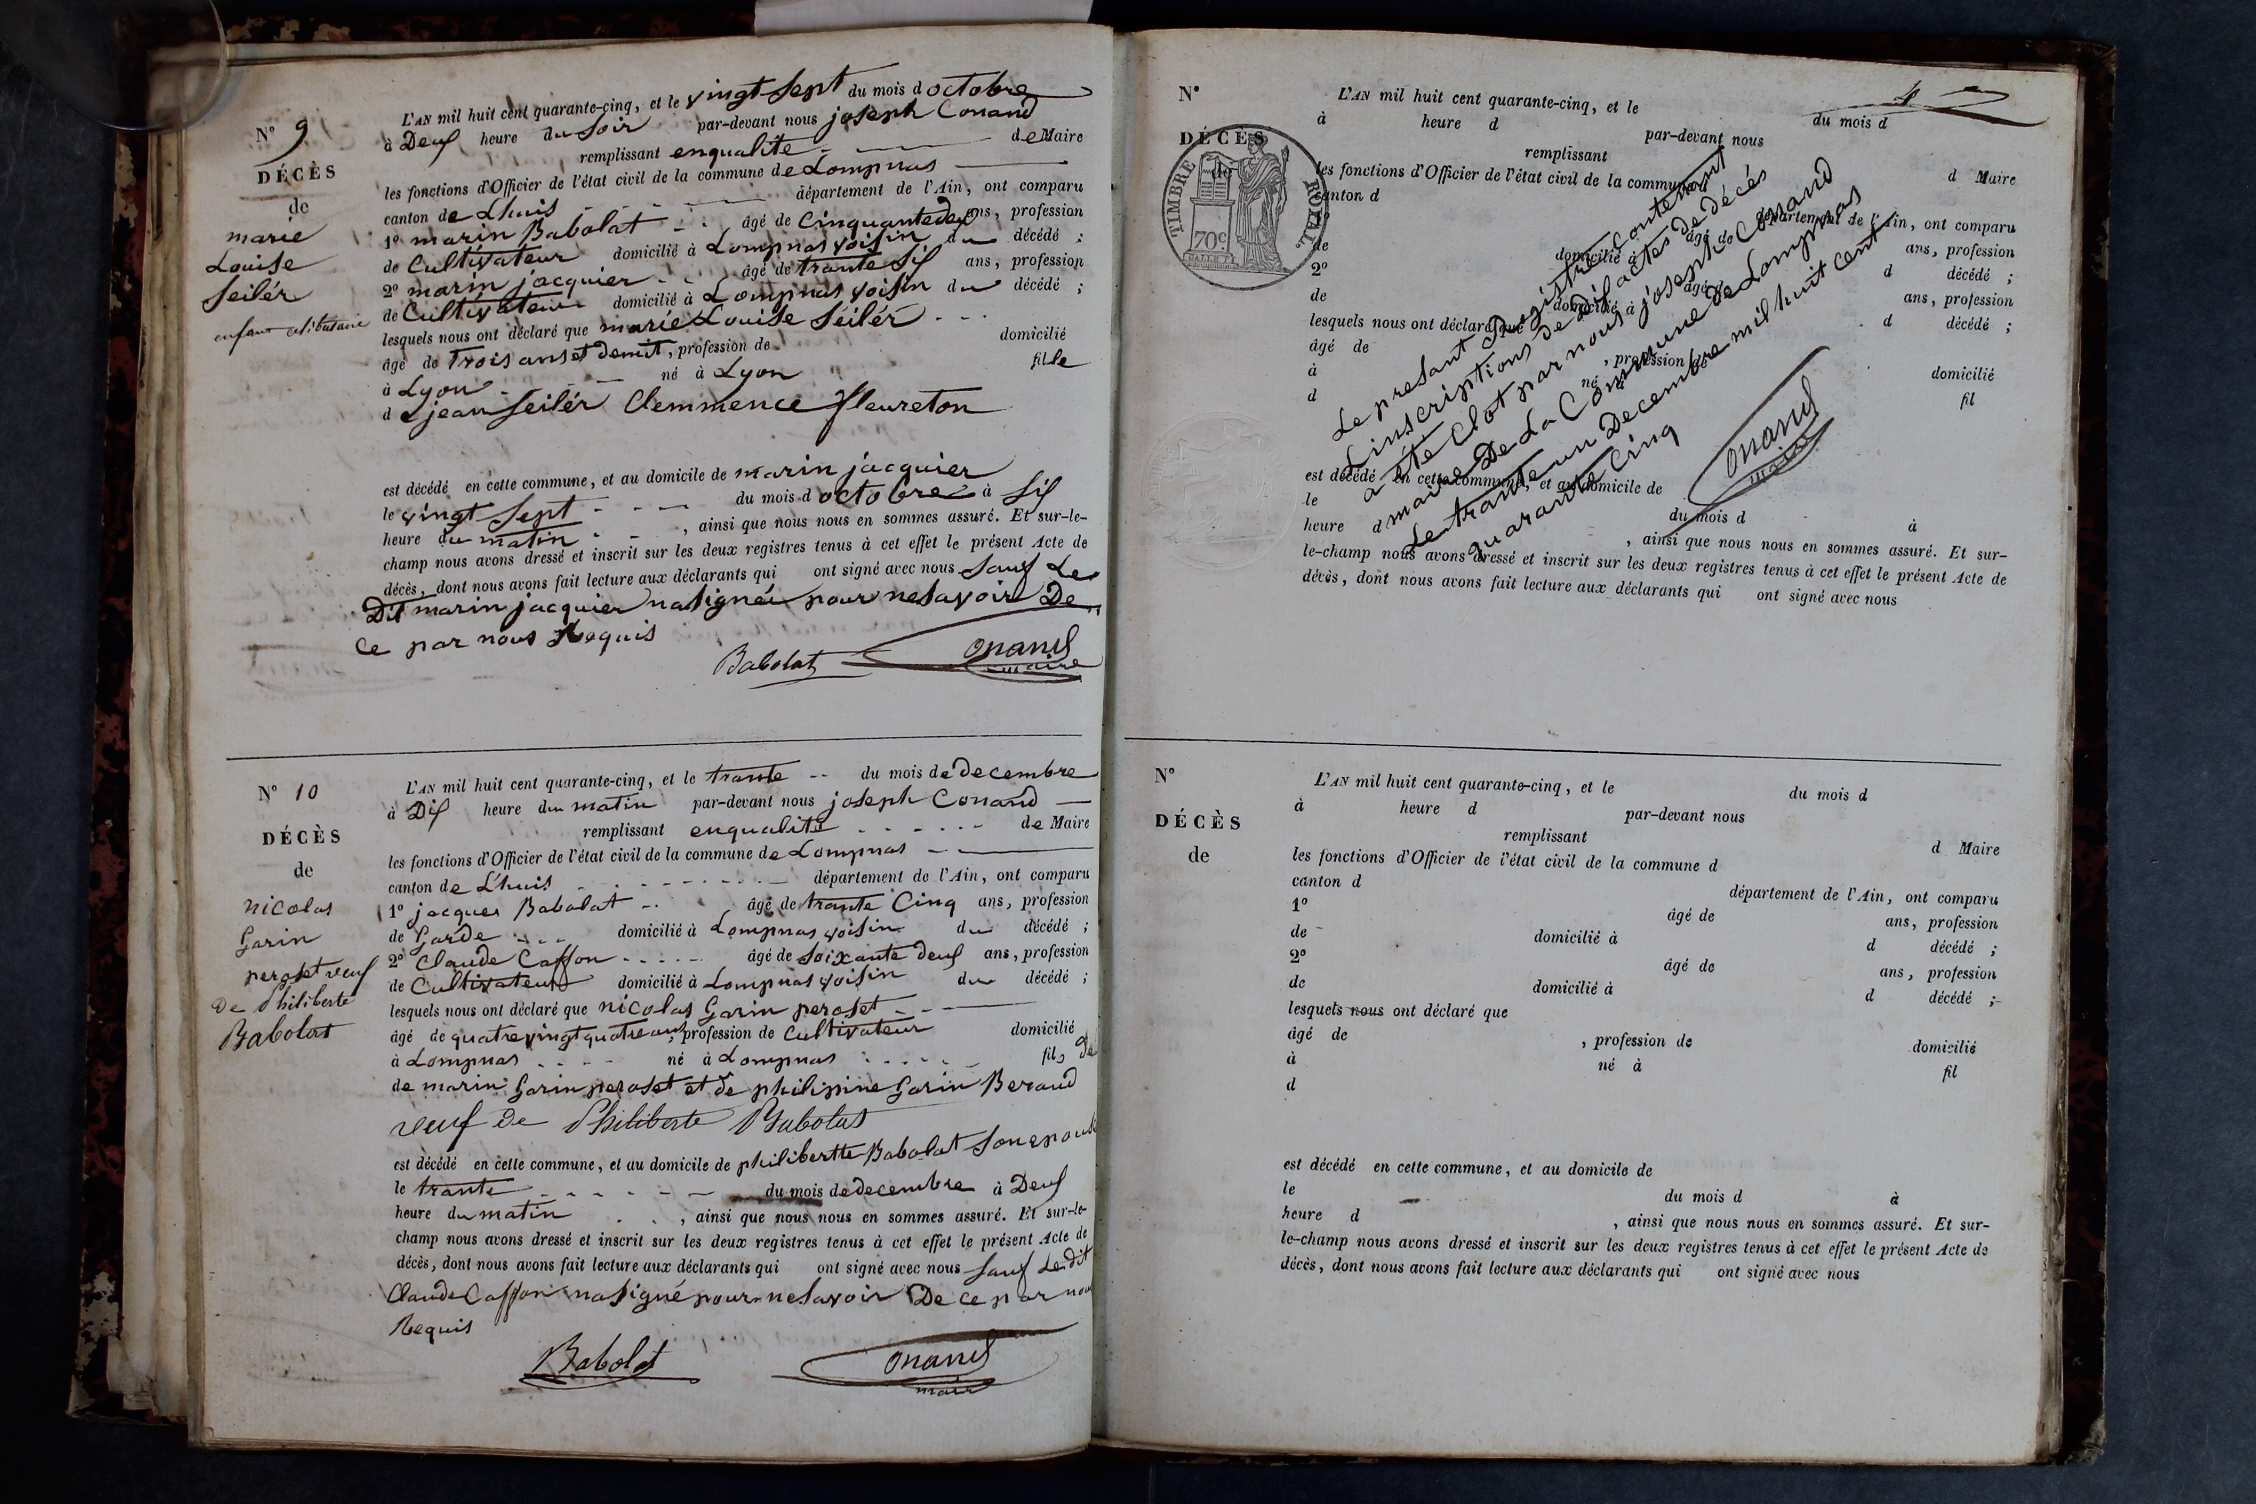 N° 9
DÉCÈS
de
marie
Louise
Seilér
enfant celibataire
L'AN mil huit cent quarante-cinq, et le vingt Sept du mois d octobre
à Deuf heure du Soir par-devant nous joseph Conand
remplissant enqualite de Maire
les fonctions d'Officier de l'état civil de la commune de Lompnas
canton de Lhuis département de l'Ain, ont comparu
1° marin Babolat âgé de Cinquantedeuf ans, profession
de Cultivateur domicilié à Lompnas voisin du décédé ;
2° marin jacquier âgé de trante Sif ans, profession
de Cultivateur domicilié à Lompnas voisin du décédé ;
lesquels nous ont déclaré que marie Louise Séilér
âgé de Trois anset demit, profession de domicilié
à Lyon né à Lyon fille
d jean Seilér Clemmence fleureton
est décédé en cette commune, et au domicile de marin jacquier
le vingt Sept du mois d octobre à Sif
heure du matin , ainsi que nous nous en sommes assuré. Et sur-le-
champ nous avons dressé et inscrit sur les deux registres tenus à cet effet le présent Acte de
décès, dont nous avons fait lecture aux déclarants qui ont signé avec nous Sauf Le
Dit marin jacquier nasignée pour nesavoir De
Ce par nous Requis
Babolat Conand
maire
N° 10
DÉCÈS
de
nicolas
Garin
peroset veuf
De Philiberte
Babolat
L'AN mil huit cent quarante-cinq, et le trante du mois de decembre
à Dif heure du matin par-devant nous joseph Conand
remplissant enqualite de Maire
les fonctions d'Officier de l'état civil de la commune de Lompnas
canton de Lhuis département de l'Ain, ont comparu
1° jacques Babolat âgé de trante Cinq ans, profession
de Garde domicilié à Lompnas voisin du décédé ;
2° Claude Caffon âgé de Soixante deuf ans, profession
de Cultivateur domicilié à Lompnas voisin du décédé ;
lesquels nous ont déclaré que nicolas Garin peroset
âgé de quatrevingt quatreans, profession de Cultivateur domicilié
à Lompnas né à Lompnas fils de
de marin Garin peroset et de philipine Garin Beraud
veuf De Philiberte Babolat
est décédé en cette commune, et au domicile de philibertte Babolat Son epouse
le trante du mois de decembre à Deuf
heure du matin , ainsi que nous nous en sommes assuré. Et sur-le-
champ nous avons dressé et inscrit sur les deux registres tenus à cet effet le présent Acte de
décès, dont nous avons fait lecture aux déclarants qui ont signé avec nous Sauf Ledit
Claude Caffon nasigné pour nesavoir De ce par nous
Requis
Babolat Conand
maire
4
N°
DÉCÈS
de
TIMBRE ROYAL
70c
L'AN mil huit cent quarante-cinq, et le du mois d
à heure d par-devant nous
remplissant d Maire
les fonctions d'Officier de l'état civil de la commune d
canton d département de l'Ain, ont comparu
1° âgé de ans, profession
de domicilié à d décédé ;
2° âgé de ans, profession
de domicilié à d décédé ;
lesquels nous ont déclaré que
âgé de , profession de domicilié
à né à fil
d
est décédé en cette commune, et au domicile de
le du mois d à
heure d , ainsi que nous nous en sommes assuré. Et sur-
le-champ nous avons dressé et inscrit sur les deux registres tenus à cet effet le présent Acte de
décès, dont nous avons fait lecture aux déclarants qui ont signé avec nous
Le presant Registre contenant
Linscriptions de Dif actes de décés
a été Clot par nous joseph Conand
maire De La Commune de Lompnas
Le trante un Decembre mil huit cent
quarante Cinq
Conand
maire
N°
DÉCÈS
de
L'AN mil huit cent quarante-cinq, et le du mois d
à heure d par-devant nous
remplissant d Maire
les fonctions d'Officier de l'état civil de la commune d
canton d département de l'Ain, ont comparu
1° âgé de ans, profession
de domicilié à d décédé ;
2° âgé de ans, profession
de domicilié à d décédé ;
lesquels nous ont déclaré que
âgé de , profession de domicilié
à né à fil
d
est décédé en cette commune, et au domicile de
le du mois d à
heure d , ainsi que nous nous en sommes assuré. Et sur-
le-champ nous avons dressé et inscrit sur les deux registres tenus à cet effet le présent Acte de
décès, dont nous avons fait lecture aux déclarants qui ont signé avec nous